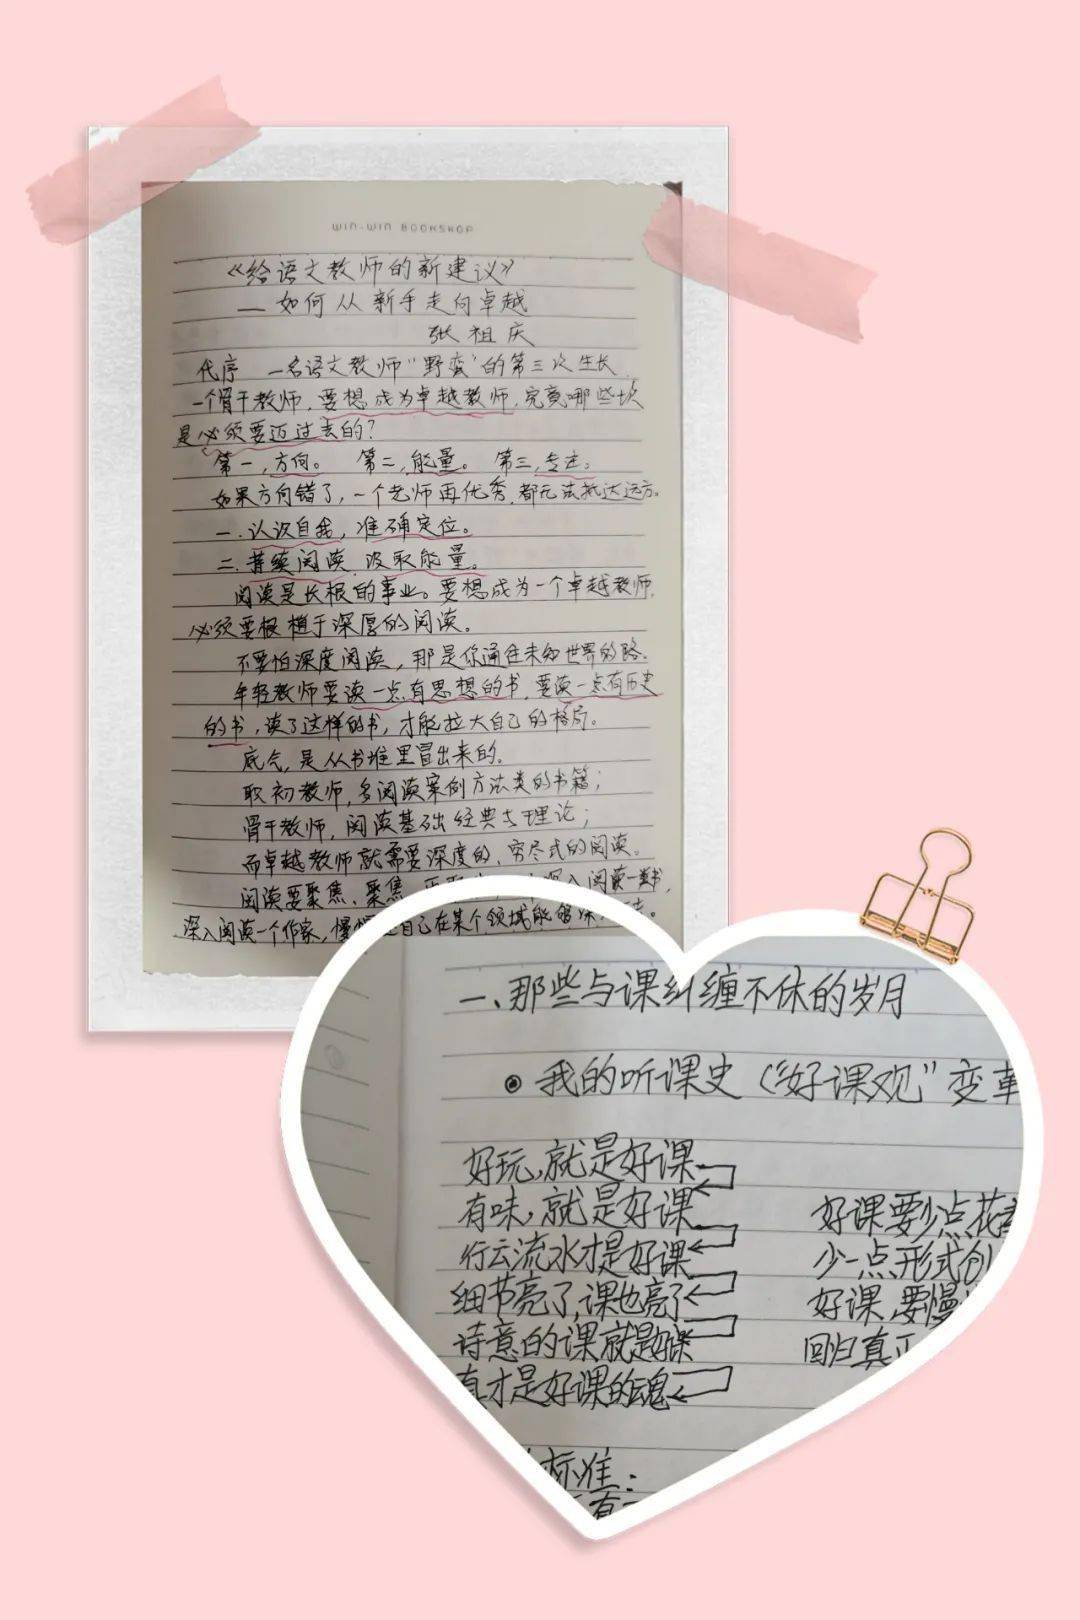 WIN-WIN BOOKSHOP
《给语文教师的新建议》
—如何从新手走向卓越
张祖庆
代序 一名语文教师“野蛮”的第三次生长
一个骨干教师,要想成为卓越教师,究竟哪些坎
是必须要迈过去的?
第一,方向。 第二,能量。 第三,专注。
如果方向错了,一个老师再优秀,都无法抵达远方。
一.认识自我,准确定位。
二.持续阅读,汲取能量。
阅读是长根的事业。要想成为一个卓越教师,
必须要根植于深厚的阅读。
不要怕深度阅读,那是你通往未知世界的路。
年轻教师要读一点有思想的书,要读一点有历史
的书,读了这样的书,才能拉大自己的格局。
底气,是从书堆里冒出来的。
职初教师,多阅读案例方法类的书籍;
骨干教师,阅读基础经典与理论;
而卓越教师就需要深度的、穷尽式的阅读。
阅读要聚焦、聚焦 深入阅读一类书,
深入阅读一个作家,慢慢 自己在某个领域能够深
一、那些与课纠缠不休的岁月
我的听课史(“好课观”变革
好玩,就是好课
有味,就是好课 好课要少点花
行云流水才是好课 少一点形式创
细节亮了,课也亮了 好课,要慢
诗意的课就是好课 回归真正
真才是好课的魂
标准:
有